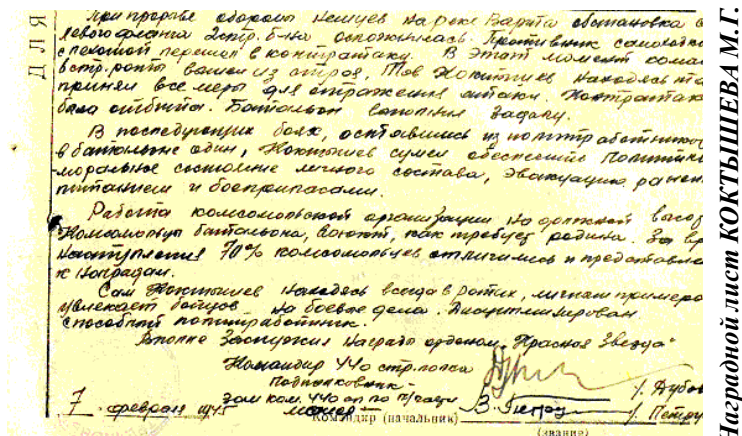 При прорыве обороны немцев на реке Варта обстановка с
левого фланга 2 стр. б-на осложнилась. Противник самоходка
с пехотой перешел в контратаку. В этот момент кома
стр. роты вышел из строя, Тов Коктышев находясь
принял все меры для отражения атаки. Контратак
была отбита. Батальон выполнил задачу.
В последующих боях, оставшись из политработников
в батальоне один, Коктышев сумел обеспечить политико
-моральное состояние личного состава, эвакуацию ранен
питанием и боеприпасами.
Работа комсомольской организации на должной высо
Комсомольцы батальона, воюют, как требует родина. За вр
наступления 70% комсомольцев отличились и представле
к наградам.
Сам Коктышев находясь всегда в ротах, личным примеро
увлекает бойцов на боевые дела. Дисциплинирован
способный политработник.
Вполне заслужил награды орденом "Красная Звезда"
Командир 440 стр. полка
Подполковник -
/. Дубов
зам ком. 440 сп по п/части
7 февраля 1945 майор
Командир (начальник)
/. Петру
(звание)
ДЛЯ
Наградной лист КОКТЫШЕВА М.Г.